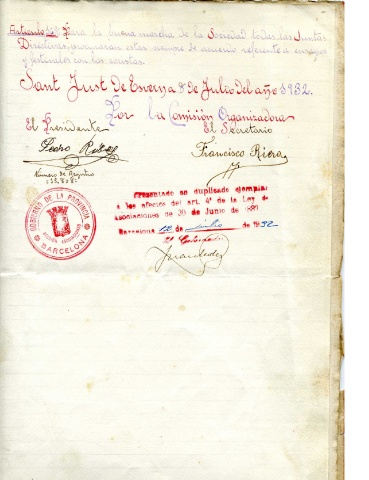 Articulo 54 Para la buena marcha de la Sociedad todas las Juntas
Directivas, procuraran estar siempre de acuerdo referente a ensayos
y festivales con los coristas.
Sant Just Desvern a 8 de Julio del año 1932.
Por la Comisión Organizadora
El Presidente
El Secretario
Pedro
Francisco Riera
Número de Registro
Presentado en duplicado ejemplar
a los efectos del art. 4º de la Ley de
Asociaciones de 30 de Junio de 1887
Barcelona 12 de Julio de 1932
El Gobernador
GOBIERNO DE LA PROVINCIA
BARCELONA